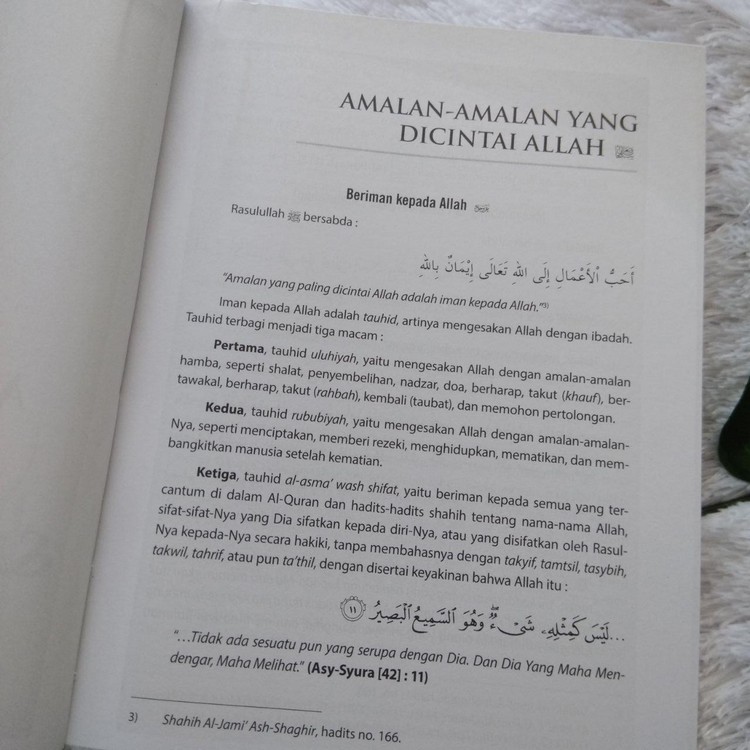 AMALAN-AMALAN YANG
DICINTAI ALLAH ﷻ
Beriman kepada Allah
Rasulullah ﷺ bersabda :
أَحَبُّ الْأَعْمَالِ إِلَى اللهِ تَعَالَى إِيْمَانٌ بِاللهِ
“Amalan yang paling dicintai Allah adalah iman kepada Allah.”3)
Iman kepada Allah adalah tauhid, artinya mengesakan Allah dengan ibadah.
Tauhid terbagi menjadi tiga macam :
Pertama, tauhid uluhiyah, yaitu mengesakan Allah dengan amalan-amalan
hamba, seperti shalat, penyembelihan, nadzar, doa, berharap, takut (khauf), ber-
tawakal, berharap, takut (rahbah), kembali (taubat), dan memohon pertolongan.
Kedua, tauhid rububiyah, yaitu mengesakan Allah dengan amalan-amalan-
Nya, seperti menciptakan, memberi rezeki, menghidupkan, mematikan, dan mem-
bangkitkan manusia setelah kematian.
Ketiga, tauhid al-asma’ wash shifat, yaitu beriman kepada semua yang ter-
cantum di dalam Al-Quran dan hadits-hadits shahih tentang nama-nama Allah,
sifat-sifat-Nya yang Dia sifatkan kepada diri-Nya, atau yang disifatkan oleh Rasul-
Nya kepada-Nya secara hakiki, tanpa membahasnya dengan takyif, tamtsil, tasybih,
takwil, tahrif, atau pun ta’thil, dengan disertai keyakinan bahwa Allah itu :
...لَيْسَ كَمِثْلِهِۦ شَىْءٌ ۖ وَهُوَ ٱلسَّمِيعُ ٱلْبَصِيرُ ١١
“...Tidak ada sesuatu pun yang serupa dengan Dia. Dan Dia Yang Maha Men-
dengar, Maha Melihat.” (Asy-Syura [42] : 11)
3) Shahih Al-Jami’ Ash-Shaghir, hadits no. 166.